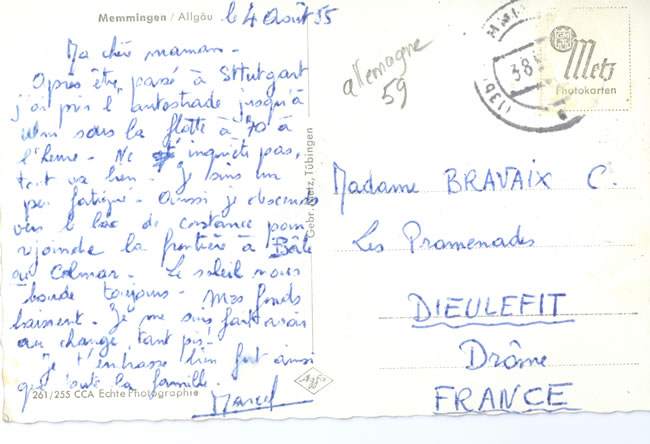 Memmingen / Allgäu
le 4 Août 55
Ma chère maman -
Après être passé à Sttutgart
j'ai pris l'autostrade jusqu'à
Ulm sous la flotte à 70 à
l'heure - Ne t'inquiète pas,
tout va bien - Je suis un
peu fatigué - Aussi je descends
vers le lac de constance pour
rejoindre la frontière à Bâle
ou Colmar - Le soleil nous
boude toujours - Mes fonds
baissent - Je me suis fait avoir
au change, tant pis.
Je t'embrasse bien fort ainsi
que toute la famille.
Marcel
261/255 CCA Echte Photographie
Gebr. Metz, Tübingen
allemagne
59
Metz
Photokarten
Madame BRAVAIX C.
Les Promenades
DIEULEFIT
Drôme
FRANCE